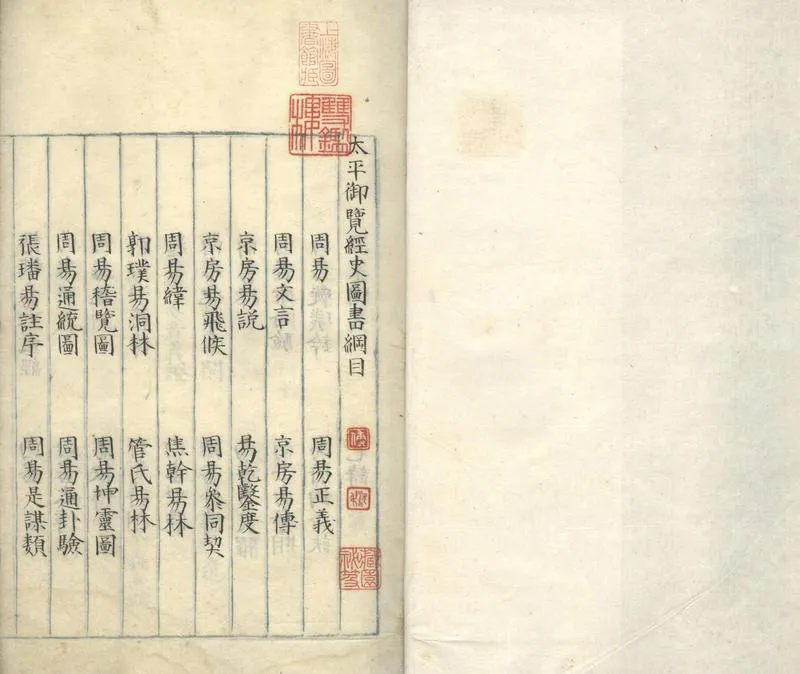 上海圖書館藏
太平御覽經史圖書綱目
周易 周易正義
周易文言 京房易傳
京房易説 易乾鑿度
京房易飛候 周易叅同契
周易緯 焦幹易林
郭璞易洞林 管氏易林
周易稽覽圖 周易坤靈圖
周易通統圖 周易通卦驗
張璠易註序 周易是謀類